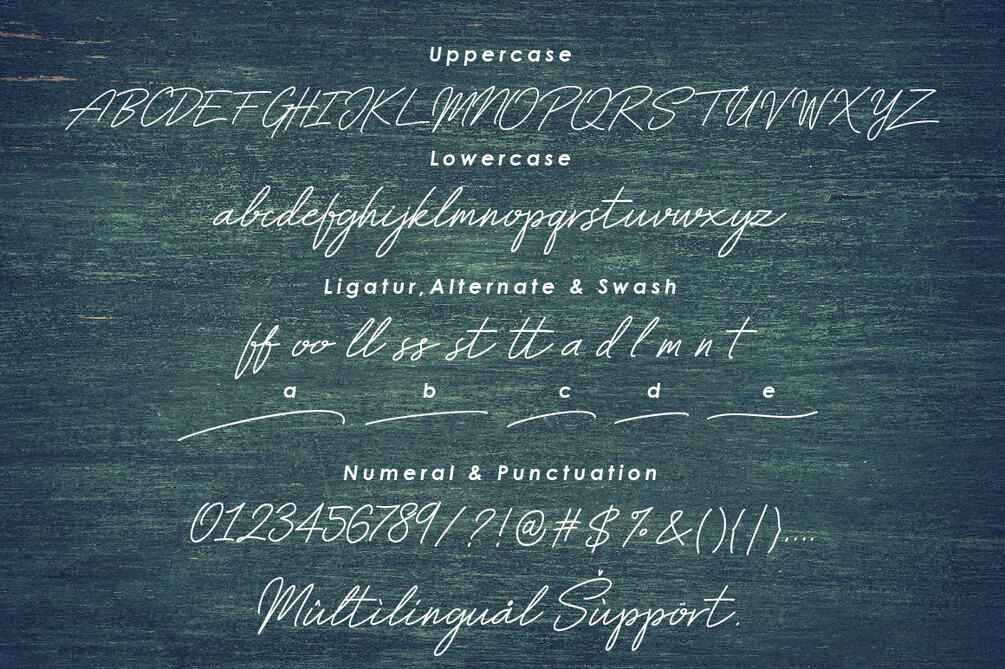 Uppercase
ABCDEFGHIJKLMNOPQRSTUVWXYZ
Lowercase
abcdefghijklmnopqrstuvwxyz
Ligatur,Alternate & Swash
ff oo ll ss st tt a d l m n t
a b c d e
Numeral & Punctuation
0123456789/?!@#$%&(){/}....
Múltìlinguál Śùppört.